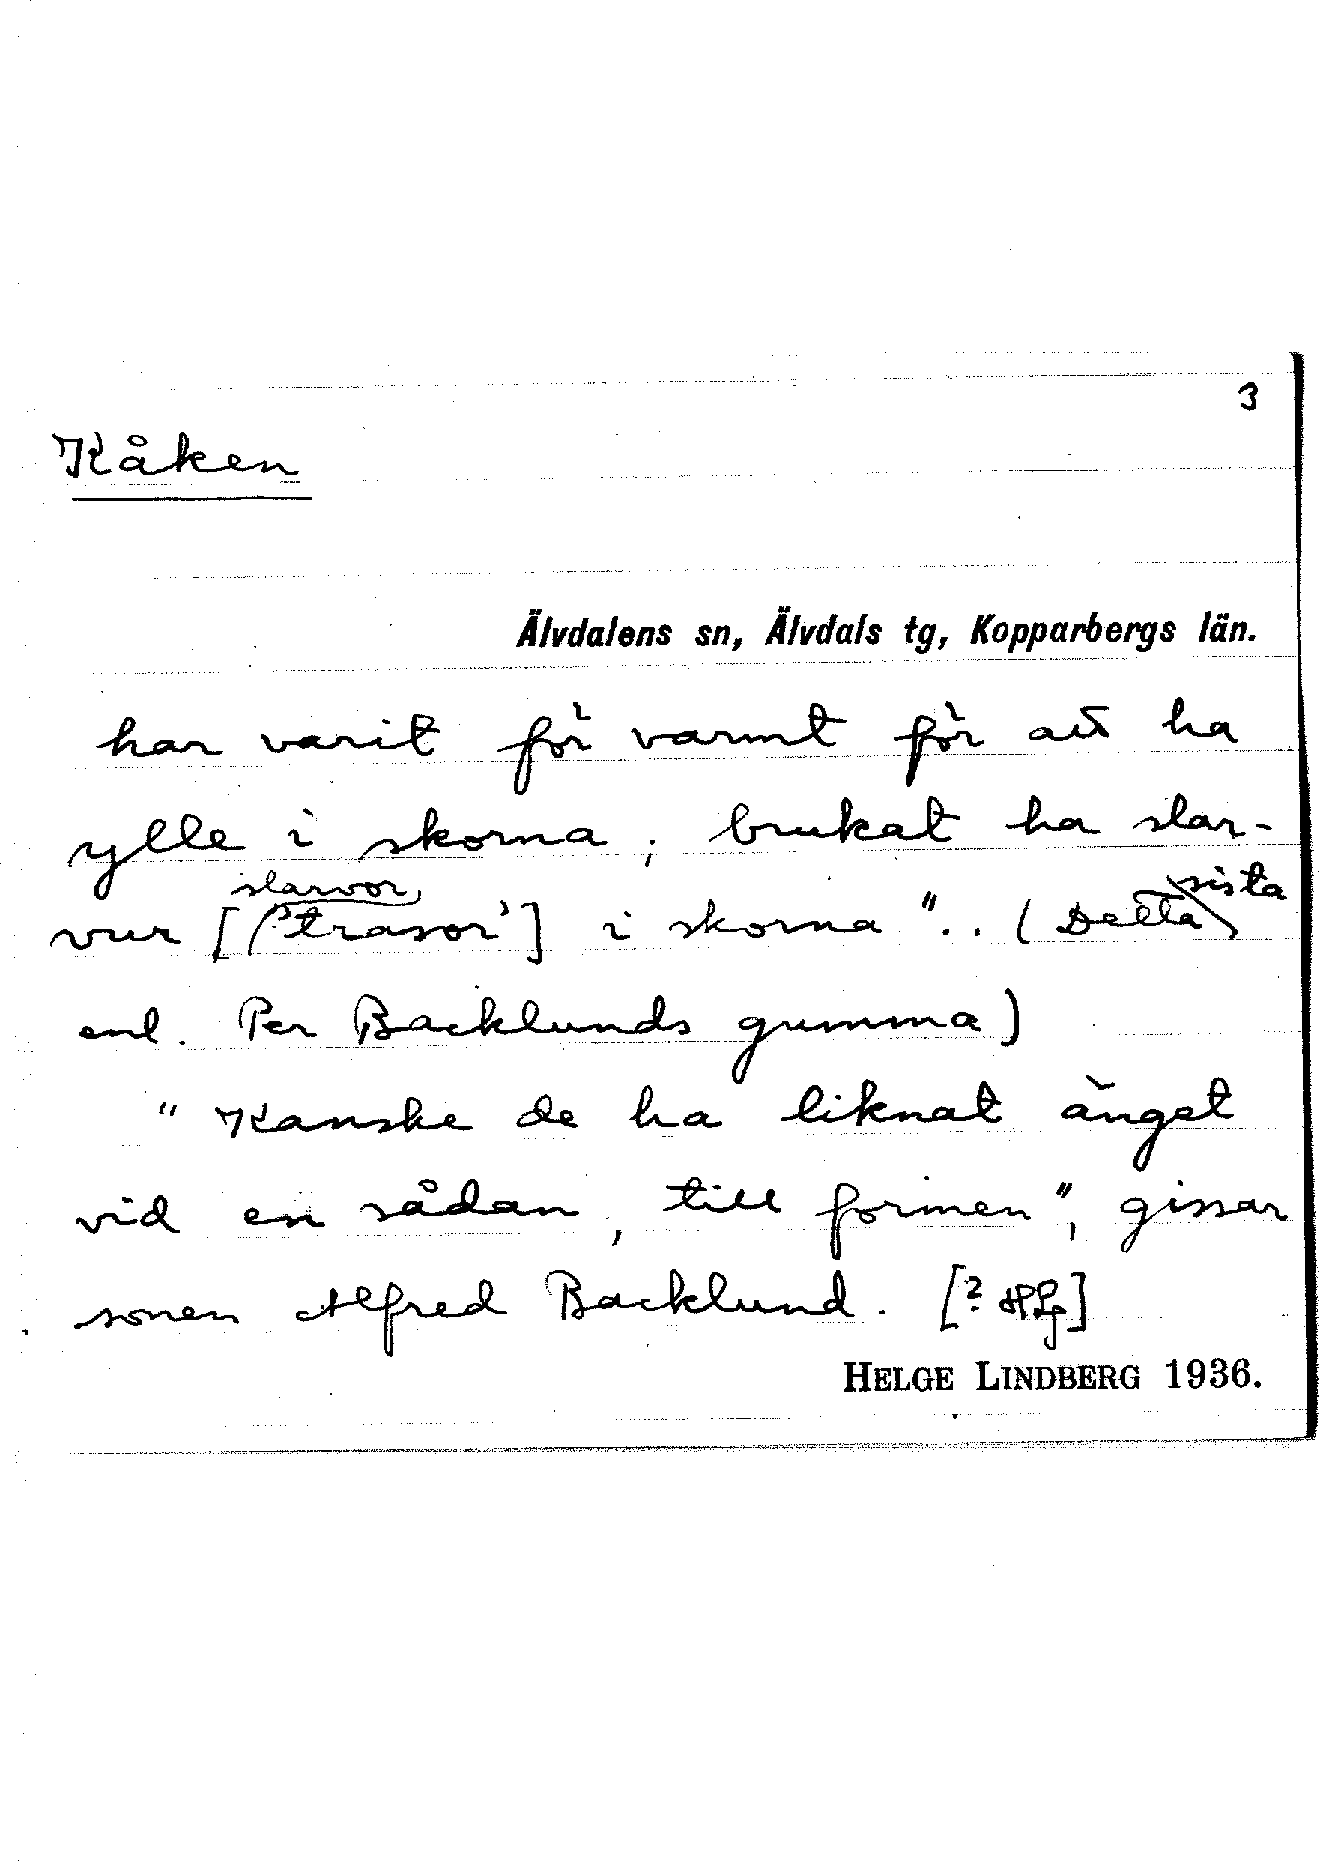 3
Kåken
Älvdalens sn, Älvdals tg, Kopparbergs län.
har varit för varmt för att ha
ylle i skorna, brukat ha slar-
vur [slarvor, 'trasor'] i skorna".. (Detta sista
enl. Per Backlunds gumma)
"Kanske de ha liknat änget
vid en sådan, till formen", gissar
sonen Alfred Backlund. [? HLg]
HELGE LINDBERG 1936.